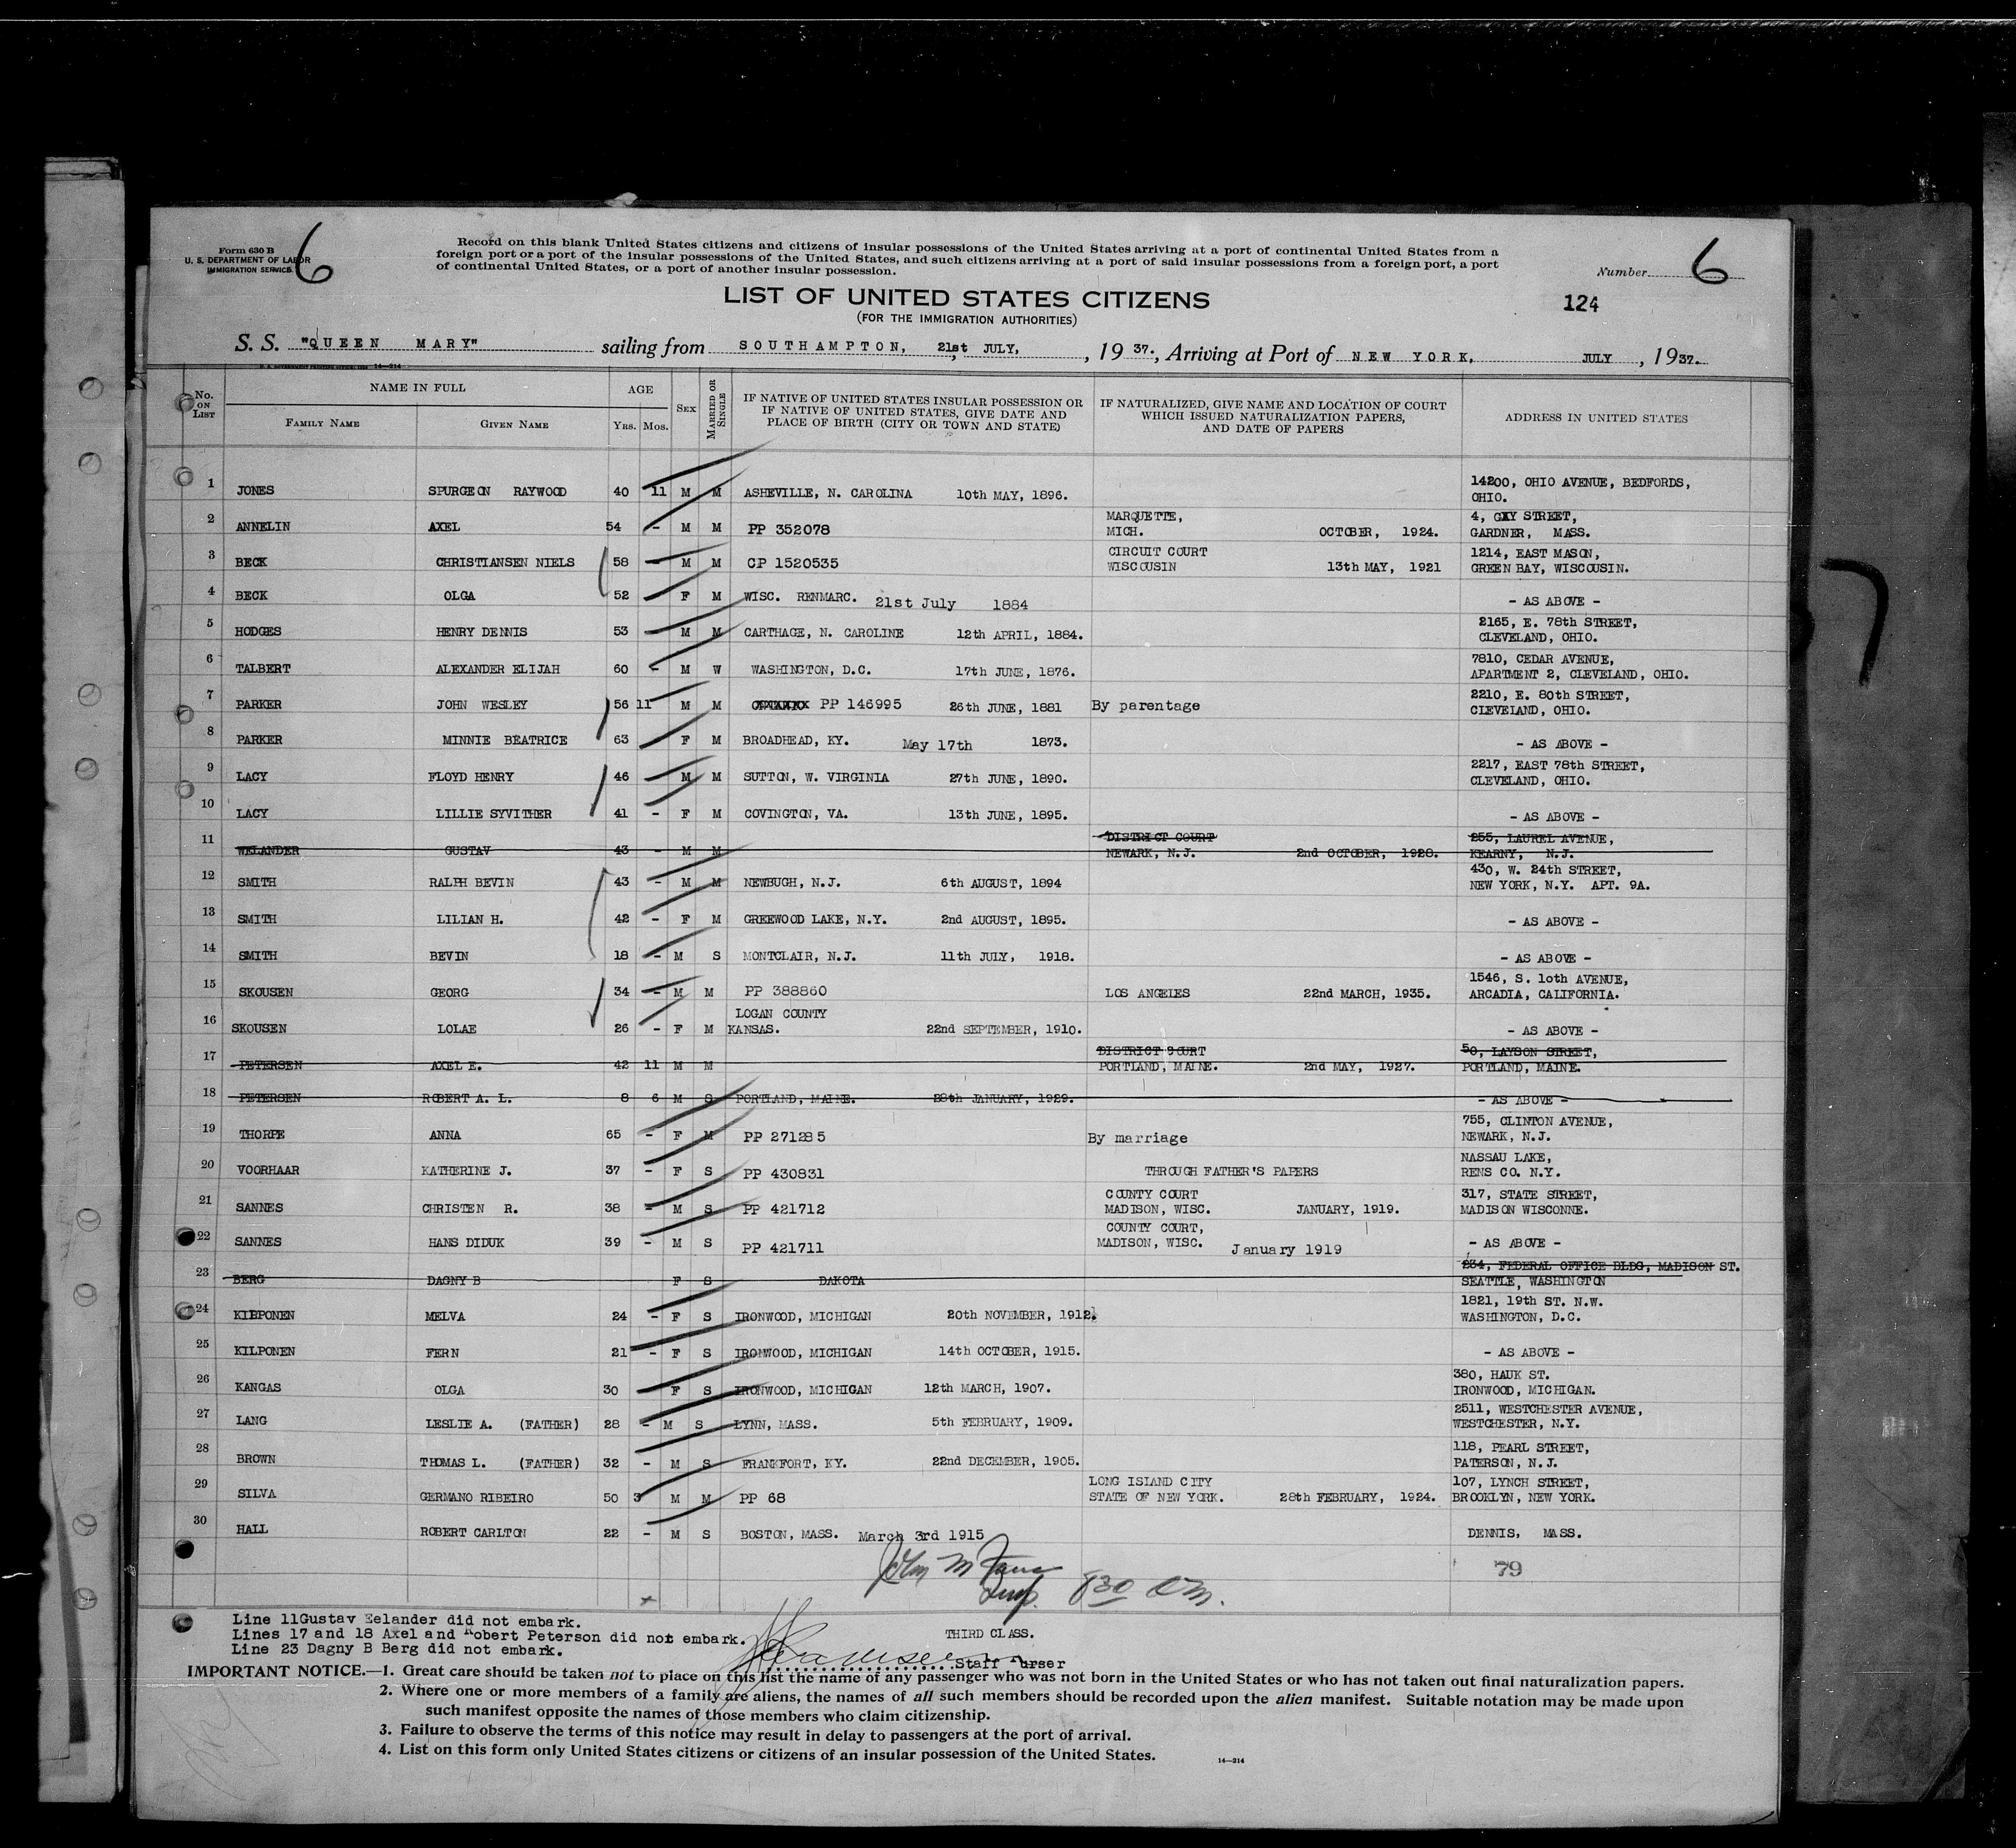 Form 630 B
U. S. DEPARTMENT OF LABOR
IMMIGRATION SERVICE
6
Record on this blank United States citizens and citizens of insular possessions of the United States arriving at a port of continental United States from a
foreign port or a port of the insular possessions of the United States, and such citizens arriving at a port of said insular possessions from a foreign port, a port
of continental United States, or a port of another insular possession.
Number 6
LIST OF UNITED STATES CITIZENS
(FOR THE IMMIGRATION AUTHORITIES)
124
S. S. "QUEEN MARY" sailing from SOUTHAMPTON, 21st JULY, , 19 37., Arriving at Port of NEW YORK, JULY , 1937.
No. ON LIST
NAME IN FULL
FAMILY NAME
GIVEN NAME
AGE
YRS. MOS.
SEX
MARRIED OR SINGLE
IF NATIVE OF UNITED STATES INSULAR POSSESSION OR
IF NATIVE OF UNITED STATES, GIVE DATE AND
PLACE OF BIRTH (CITY OR TOWN AND STATE)
IF NATURALIZED, GIVE NAME AND LOCATION OF COURT
WHICH ISSUED NATURALIZATION PAPERS,
AND DATE OF PAPERS
ADDRESS IN UNITED STATES
1 JONES SPURGEON RAYWOOD 40 11 M M ASHEVILLE, N. CAROLINA 10th MAY, 1896. 14200, OHIO AVENUE, BEDFORDS,
OHIO.
2 ANNELIN AXEL 54 - M M PP 352078 MARQUETTE,
MICH. OCTOBER, 1924. 4, GAY STREET,
GARDNER, MASS.
3 BECK CHRISTIANSEN NIELS 58 - M M CP 1520535 CIRCUIT COURT
WISCOUSIN 13th MAY, 1921 1214, EAST MASON,
GREEN BAY, WISCOUSIN.
4 BECK OLGA 52 - F M WISC. RENMARC. 21st July 1884 - AS ABOVE -
5 HODGES HENRY DENNIS 53 - M M CARTHAGE, N. CAROLINE 12th APRIL, 1884. 2165, E. 78th STREET,
CLEVELAND, OHIO.
6 TALBERT ALEXANDER ELIJAH 60 - M W WASHINGTON, D.C. 17th JUNE, 1876. 7810, CEDAR AVENUE,
APARTMENT 2, CLEVELAND, OHIO.
7 PARKER JOHN WESLEY 56 11 M M PP 146995 26th JUNE, 1881 By parentage 2210, E. 80th STREET,
CLEVELAND, OHIO.
8 PARKER MINNIE BEATRICE 63 F M BROADHEAD, KY. May 17th 1873. - AS ABOVE -
9 LACY FLOYD HENRY 46 - M M SUTTON, W. VIRGINIA 27th JUNE, 1890. 2217, EAST 78th STREET,
CLEVELAND, OHIO.
10 LACY LILLIE SYVITHER 41 - F M COVINGTON, VA. 13th JUNE, 1895. - AS ABOVE -
11 WELANDER GUSTAV 43 - M M DISTRICT COURT
NEWARK, N.J. 2nd OCTOBER, 1928. 255, LAUREL AVENUE,
KEARNY, N.J.
12 SMITH RALPH BEVIN 43 - M M NEWBUGH, N.J. 6th AUGUST, 1894 430, W. 24th STREET,
NEW YORK, N.Y. APT. 9A.
13 SMITH LILIAN H. 42 - F M GREEWOOD LAKE, N.Y. 2nd AUGUST, 1895. - AS ABOVE -
14 SMITH BEVIN 18 - M S MONTCLAIR, N.J. 11th JULY, 1918. - AS ABOVE -
15 SKOUSEN GEORG 34 - M M PP 388860 LOS ANGELES 22nd MARCH, 1935. 1546, S. loth AVENUE,
ARCADIA, CALIFORNIA.
16 SKOUSEN LOLAE 26 - F M LOGAN COUNTY
KANSAS. 22nd SEPTEMBER, 1910. - AS ABOVE -
17 PETERSEN AXEL E. 42 11 M M DISTRICT COURT
PORTLAND, MAINE. 2nd MAY, 1927. 50, LAYSON STREET,
PORTLAND, MAINE.
18 PETERSEN ROBERT A. L. 8 6 M S PORTLAND, MAINE. 28th JANUARY, 1929. - AS ABOVE -
19 THORPE ANNA 65 - F M PP 271285 By marriage 755, CLINTON AVENUE,
NEWARK, N.J.
20 VOORHAAR KATHERINE J. 37 - F S PP 430831 THROUGH FATHER'S PAPERS NASSAU LAKE,
RENS CO. N.Y.
21 SANNES CHRISTEN R. 38 - M S PP 421712 COUNTY COURT
MADISON, WISC. JANUARY, 1919. 317, STATE STREET,
MADISON WISCONNE.
22 SANNES HANS DIDUK 39 - M S PP 421711 COUNTY COURT,
MADISON, WISC. January 1919 - AS ABOVE -
23 BERG DAGNY B F S DAKOTA 234, FEDERAL OFFICE BLDG, MADISON ST.
SEATTLE, WASHINGTON
24 KILPONEN MELVA 24 - F S IRONWOOD, MICHIGAN 20th NOVEMBER, 1912. 1821, 19th ST. N.W.
WASHINGTON, D.C.
25 KILPONEN FERN 21 - F S IRONWOOD, MICHIGAN 14th OCTOBER, 1915. - AS ABOVE -
26 KANGAS OLGA 30 F S IRONWOOD, MICHIGAN 12th MARCH, 1907. 380, HAUK ST.
IRONWOOD, MICHIGAN.
27 LANG LESLIE A. (FATHER) 28 - M S LYNN, MASS. 5th FEBRUARY, 1909. 2511, WESTCHESTER AVENUE,
WESTCHESTER, N.Y.
28 BROWN THOMAS L. (FATHER) 32 - M S FRANKFORT, KY. 22nd DECEMBER, 1905. 118, PEARL STREET,
PATERSON, N.J.
29 SILVA GERMANO RIBEIRO 50 3 M M PP 68 LONG ISLAND CITY
STATE OF NEW YORK. 28th FEBRUARY, 1924. 107, LYNCH STREET,
BROOKLYN, NEW YORK.
30 HALL ROBERT CARLTON 22 - M S BOSTON, MASS. March 3rd 1915 DENNIS, MASS.
79
John M
Insp. 830
Line 11Gustav Eelander did not embark.
Lines 17 and 18 Axel and Robert Peterson did not embark.
Line 23 Dagny B Berg did not embark.
THIRD CLASS.
Staff Purser
IMPORTANT NOTICE.—1. Great care should be taken not to place on this list the name of any passenger who was not born in the United States or who has not taken out final naturalization papers.
2. Where one or more members of a family are aliens, the names of all such members should be recorded upon the alien manifest. Suitable notation may be made upon
such manifest opposite the names of those members who claim citizenship.
3. Failure to observe the terms of this notice may result in delay to passengers at the port of arrival.
4. List on this form only United States citizens or citizens of an insular possession of the United States.
14—214